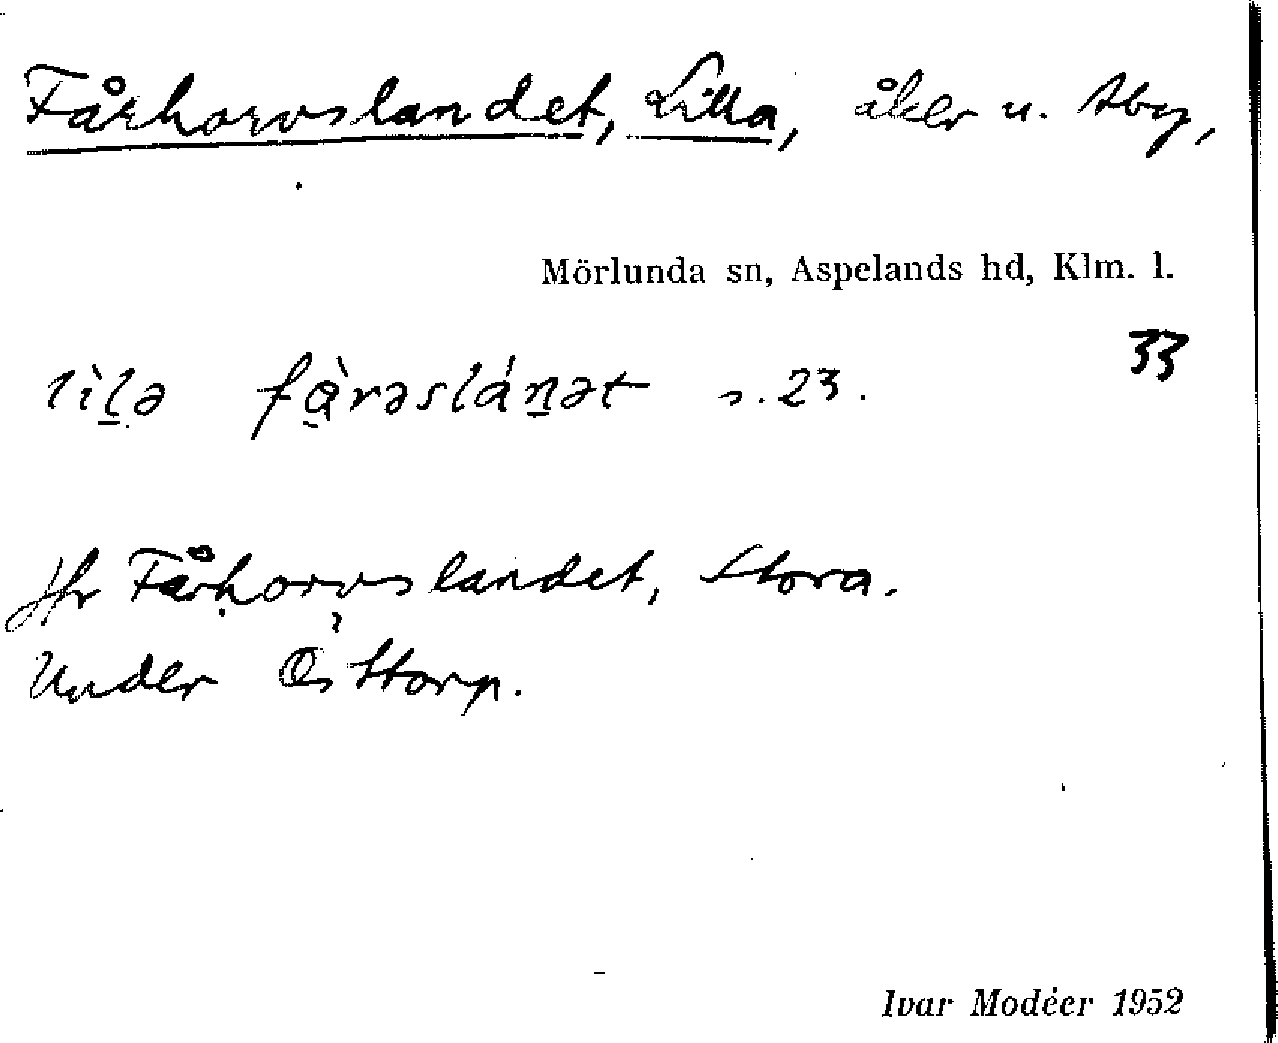 Fårhorvslandet, Lilla, åker u. Åby,
Mörlunda sn, Aspelands hd, Klm. l.
33
lìl̠ə fὰ̠rəslán̠ət s. 23.
Jfr Fårhorvslandet, Stora.
Under Östtorp.
Ivar Modéer 1952